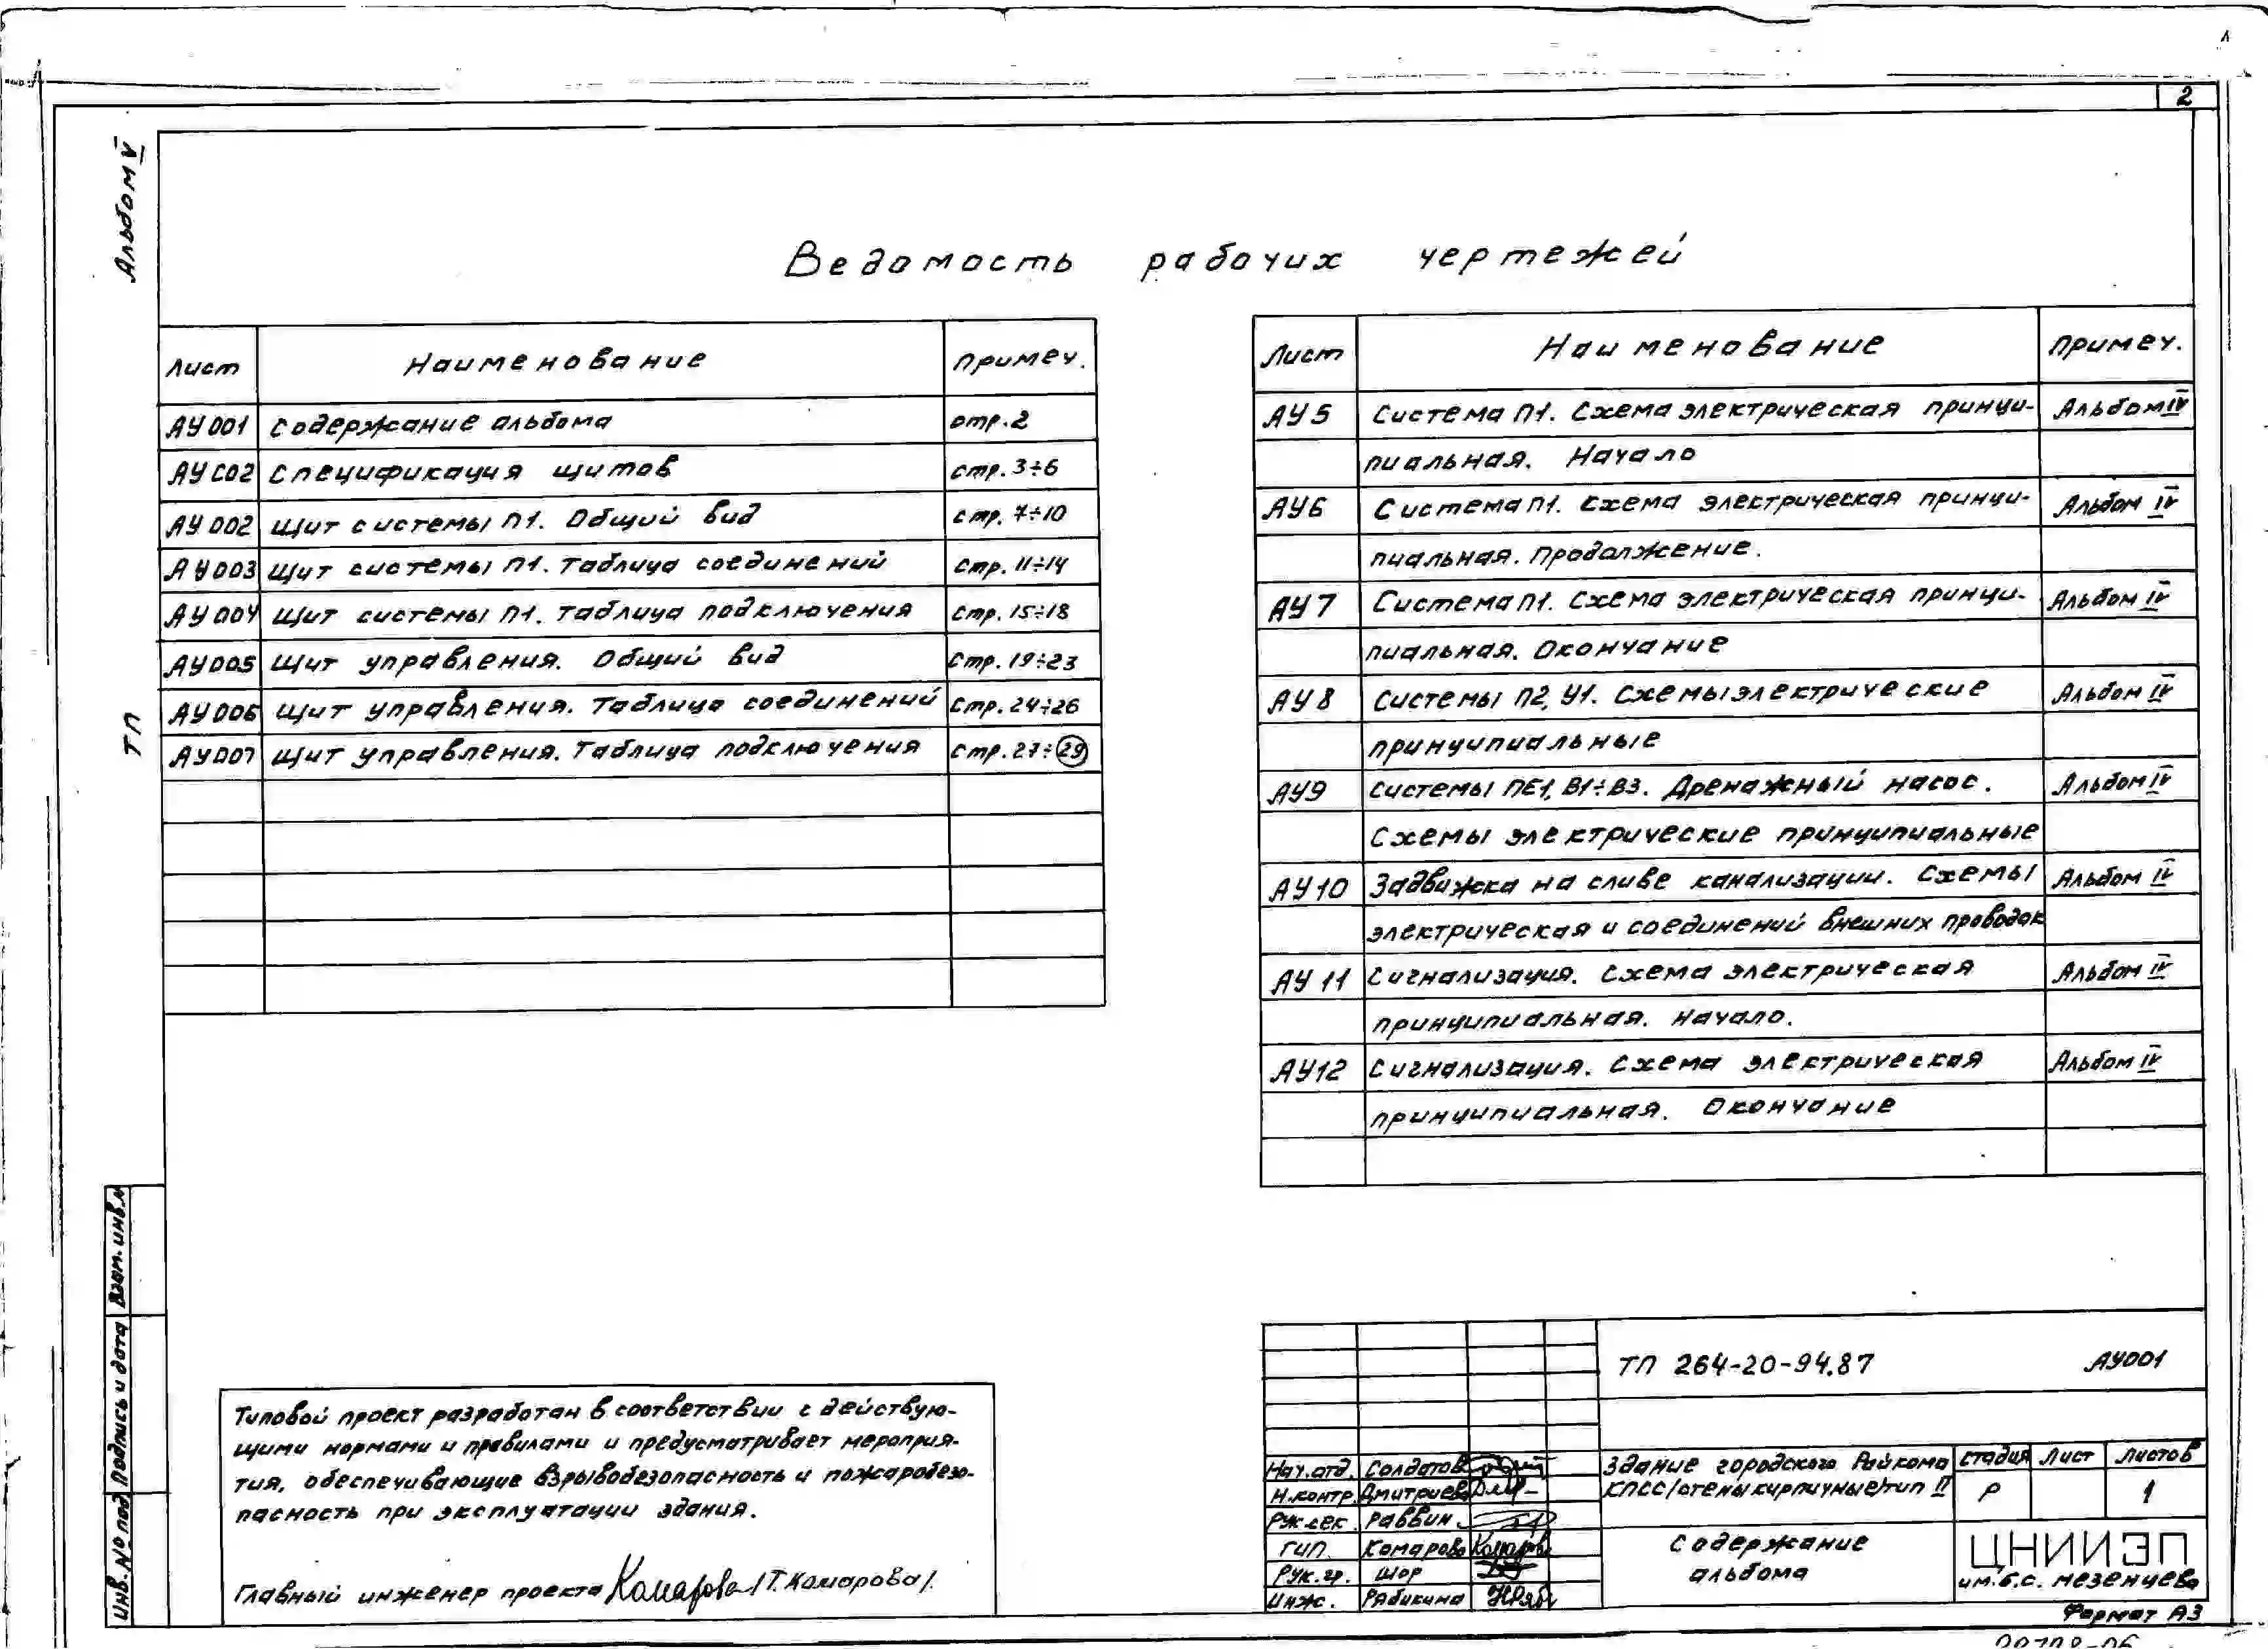 2
Альбом V
ТП
Ведомость рабочих чертежей
Лист Наименование Примеч.
АУ001 Содержание альбома стр.2
АУС02 Спецификация щитов стр.3÷6
АУ002 Щит системы П1. Общий вид стр. 7÷10
АУ003 Щит системы П1. Таблица соединений стр. 11÷14
АУ004 Щит системы П1. Таблица подключения стр. 15÷18
АУ005 Щит управления. Общий вид стр. 19÷23
АУ006 Щит управления. Таблица соединений стр. 24÷26
АУ007 Щит управления. Таблица подключения стр. 27÷29
Лист Наименование Примеч.
АУ5 Система П1. Схема электрическая принци- Альбом IV
пиальная. Начало
АУ6 Система П1. Схема электрическая принци- Альбом IV
пиальная. Продолжение.
АУ7 Система П1. Схема электрическая принци- Альбом IV
пиальная. Окончание
АУ8 Системы П2, У1. Схемы электрические Альбом IV
принципиальные
АУ9 Системы ПЕ1, В1÷В3. Дренажный насос. Альбом IV
Схемы электрические принципиальные
АУ10 Задвижка на сливе канализации. Схемы Альбом IV
электрическая и соединений внешних проводок
АУ11 Сигнализация. Схема электрическая Альбом IV
принципиальная. Начало.
АУ12 Сигнализация. Схема электрическая Альбом IV
принципиальная. Окончание
Типовой проект разработан в соответствии с действую-
щими нормами и правилами и предусматривает мероприя-
тия, обеспечивающие взрывобезопасность и пожаробезо-
пасность при эксплуатации здания.
Главный инженер проекта Комарова /Т.Комарова/.
Взам. инв.№
Подпись и дата
Инв. № под
ТП 264-20-94.87 АУ001
Нач.отд. Солдатов
Н.контр. Дмитриева
Рук.сек. Раввин
ГИП Комарова
Рук.гр. Шор
Инж. Рябикина
Здание городского Райкома
КПСС/стены кирпичные/тип II
Стадия Лист Листов
Р 1
Содержание
альбома
ЦНИИЭП
им. Б.С. Мезенцева
Формат А3